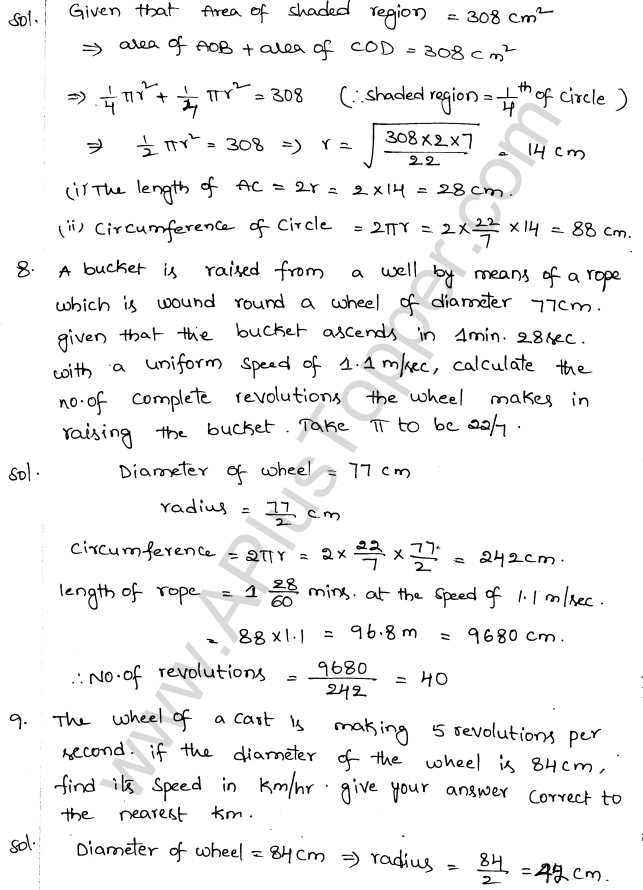 Sol. Given that Area of shaded region = 308 cm²
⇒ area of AOB + area of COD = 308 cm²
⇒ 1/4 πr² + 1/4 πr² = 308 (∵ shaded region = 1/4 th of circle)
⇒ 1/2 πr² = 308 ⇒ r = √(308×2×7/22) = 14 cm
(i) The length of AC = 2r = 2×14 = 28 cm.
(ii) Circumference of Circle = 2πr = 2×22/7×14 = 88 cm.
8. A bucket is raised from a well by means of a rope
which is wound round a wheel of diameter 77cm.
given that the bucket ascends in 1min. 28sec.
with a uniform speed of 1.1m/sec, calculate the
no.of complete revolutions the wheel makes in
raising the bucket. Take π to be 22/7.
Sol. Diameter of wheel = 77 cm
radius = 77/2 cm
Circumference = 2πr = 2×22/7×77/2 = 242cm.
length of rope = 1 28/60 mins. at the speed of 1.1 m/sec.
= 88×1.1 = 96.8m = 9680 cm.
∴ No.of revolutions = 9680/242 = 40
9. The wheel of a cart is making 5 revolutions per
second. if the diameter of the wheel is 84cm,
find its speed in Km/hr. give your answer correct to
the nearest km.
Sol. Diameter of wheel = 84cm ⇒ radius = 84/2 = 42 cm.
www.APlusTopper.com